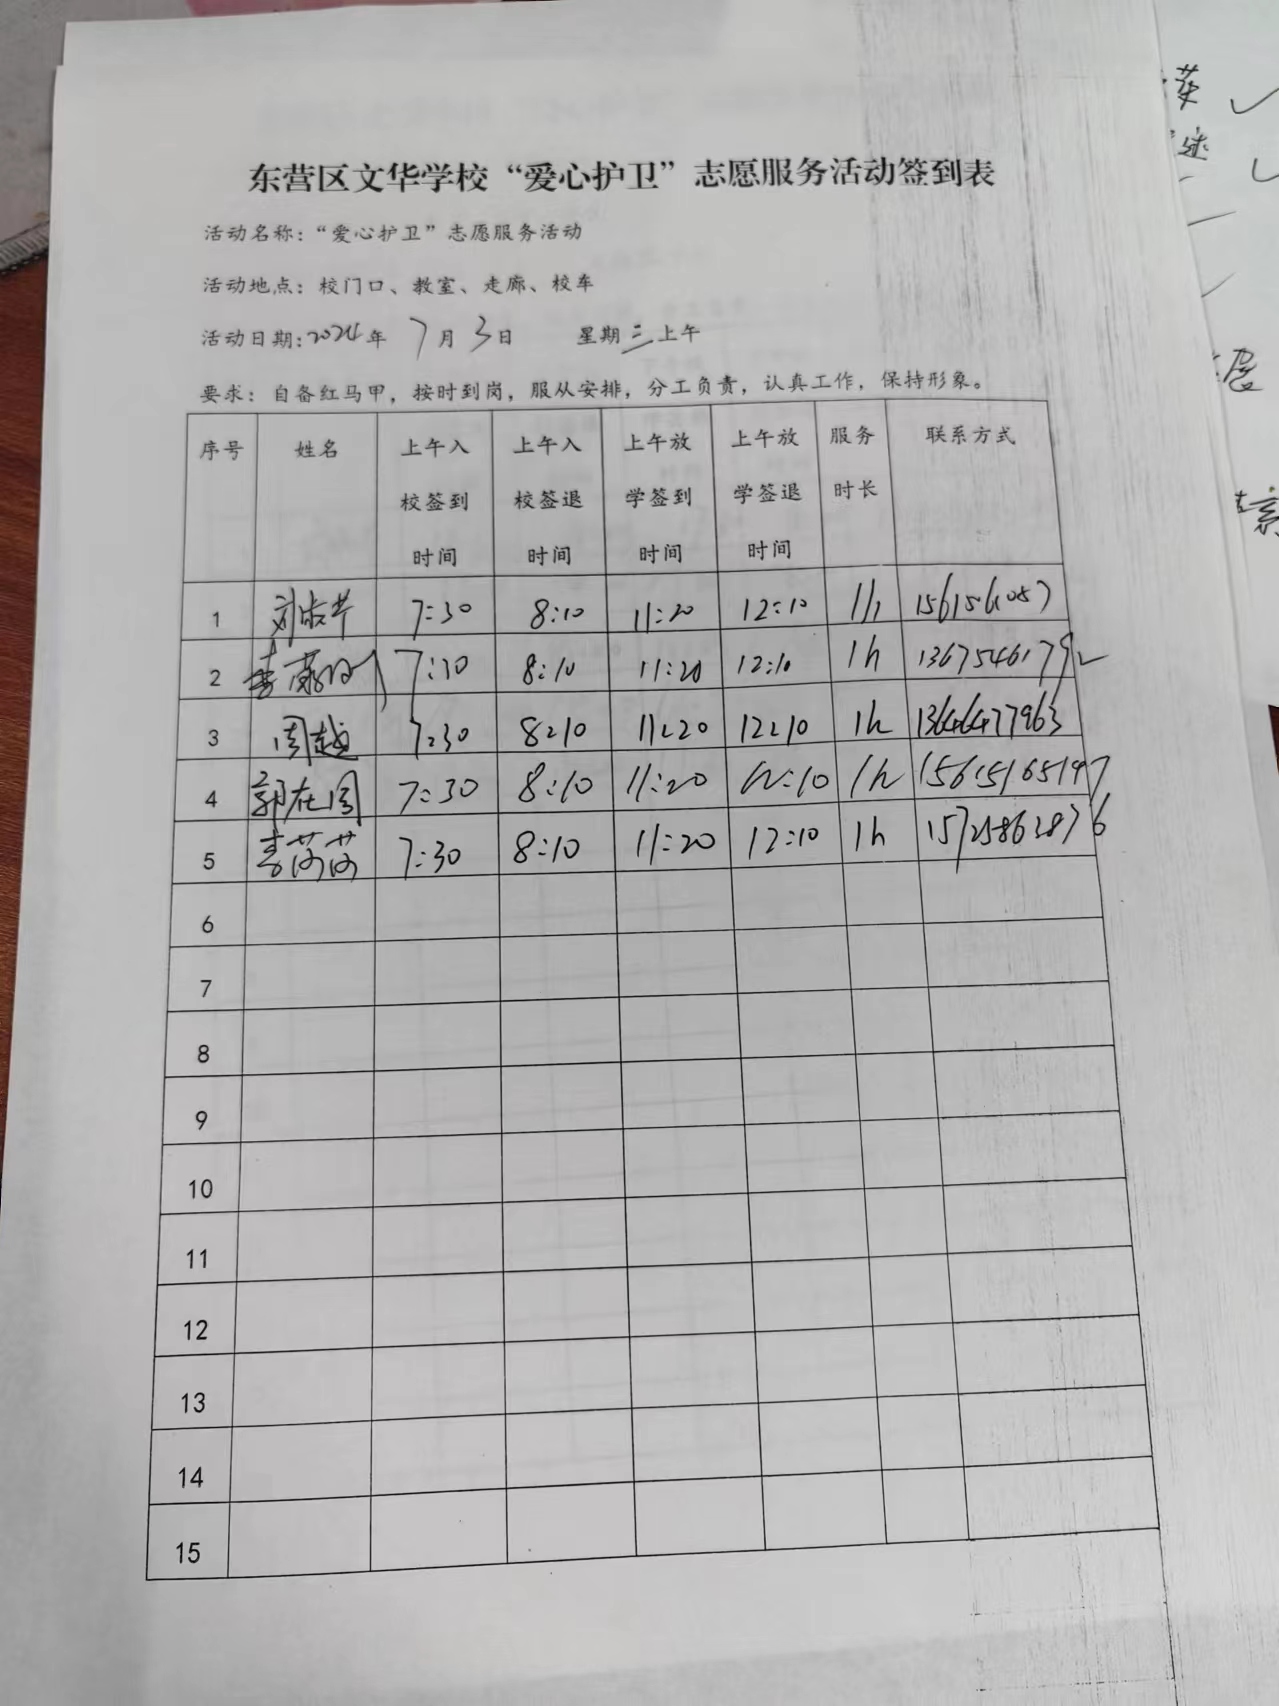 东营区文华学校“爱心护卫”志愿服务活动签到表
活动名称：“爱心护卫”志愿服务活动
活动地点：校门口、教室、走廊、校车
活动日期：2024年 7月3日 星期三上午
要求：自备红马甲，按时到岗，服从安排，分工负责，认真工作，保持形象。
序号 姓名 上午入校签到时间 上午入校签退时间 上午放学签到时间 上午放学签退时间 服务时长 联系方式
1 7:30 8:10 11:20 12:10 1h
2 7:30 8:10 11:20 12:10 1h 13675461792
3 周越 7:30 8:10 11:20 12:10 1h 13646477963
4 郭在同 7:30 8:10 11:20 12:10 1h 15615165197
5 7:30 8:10 11:20 12:10 1h 15725863876
6
7
8
9
10
11
12
13
14
15